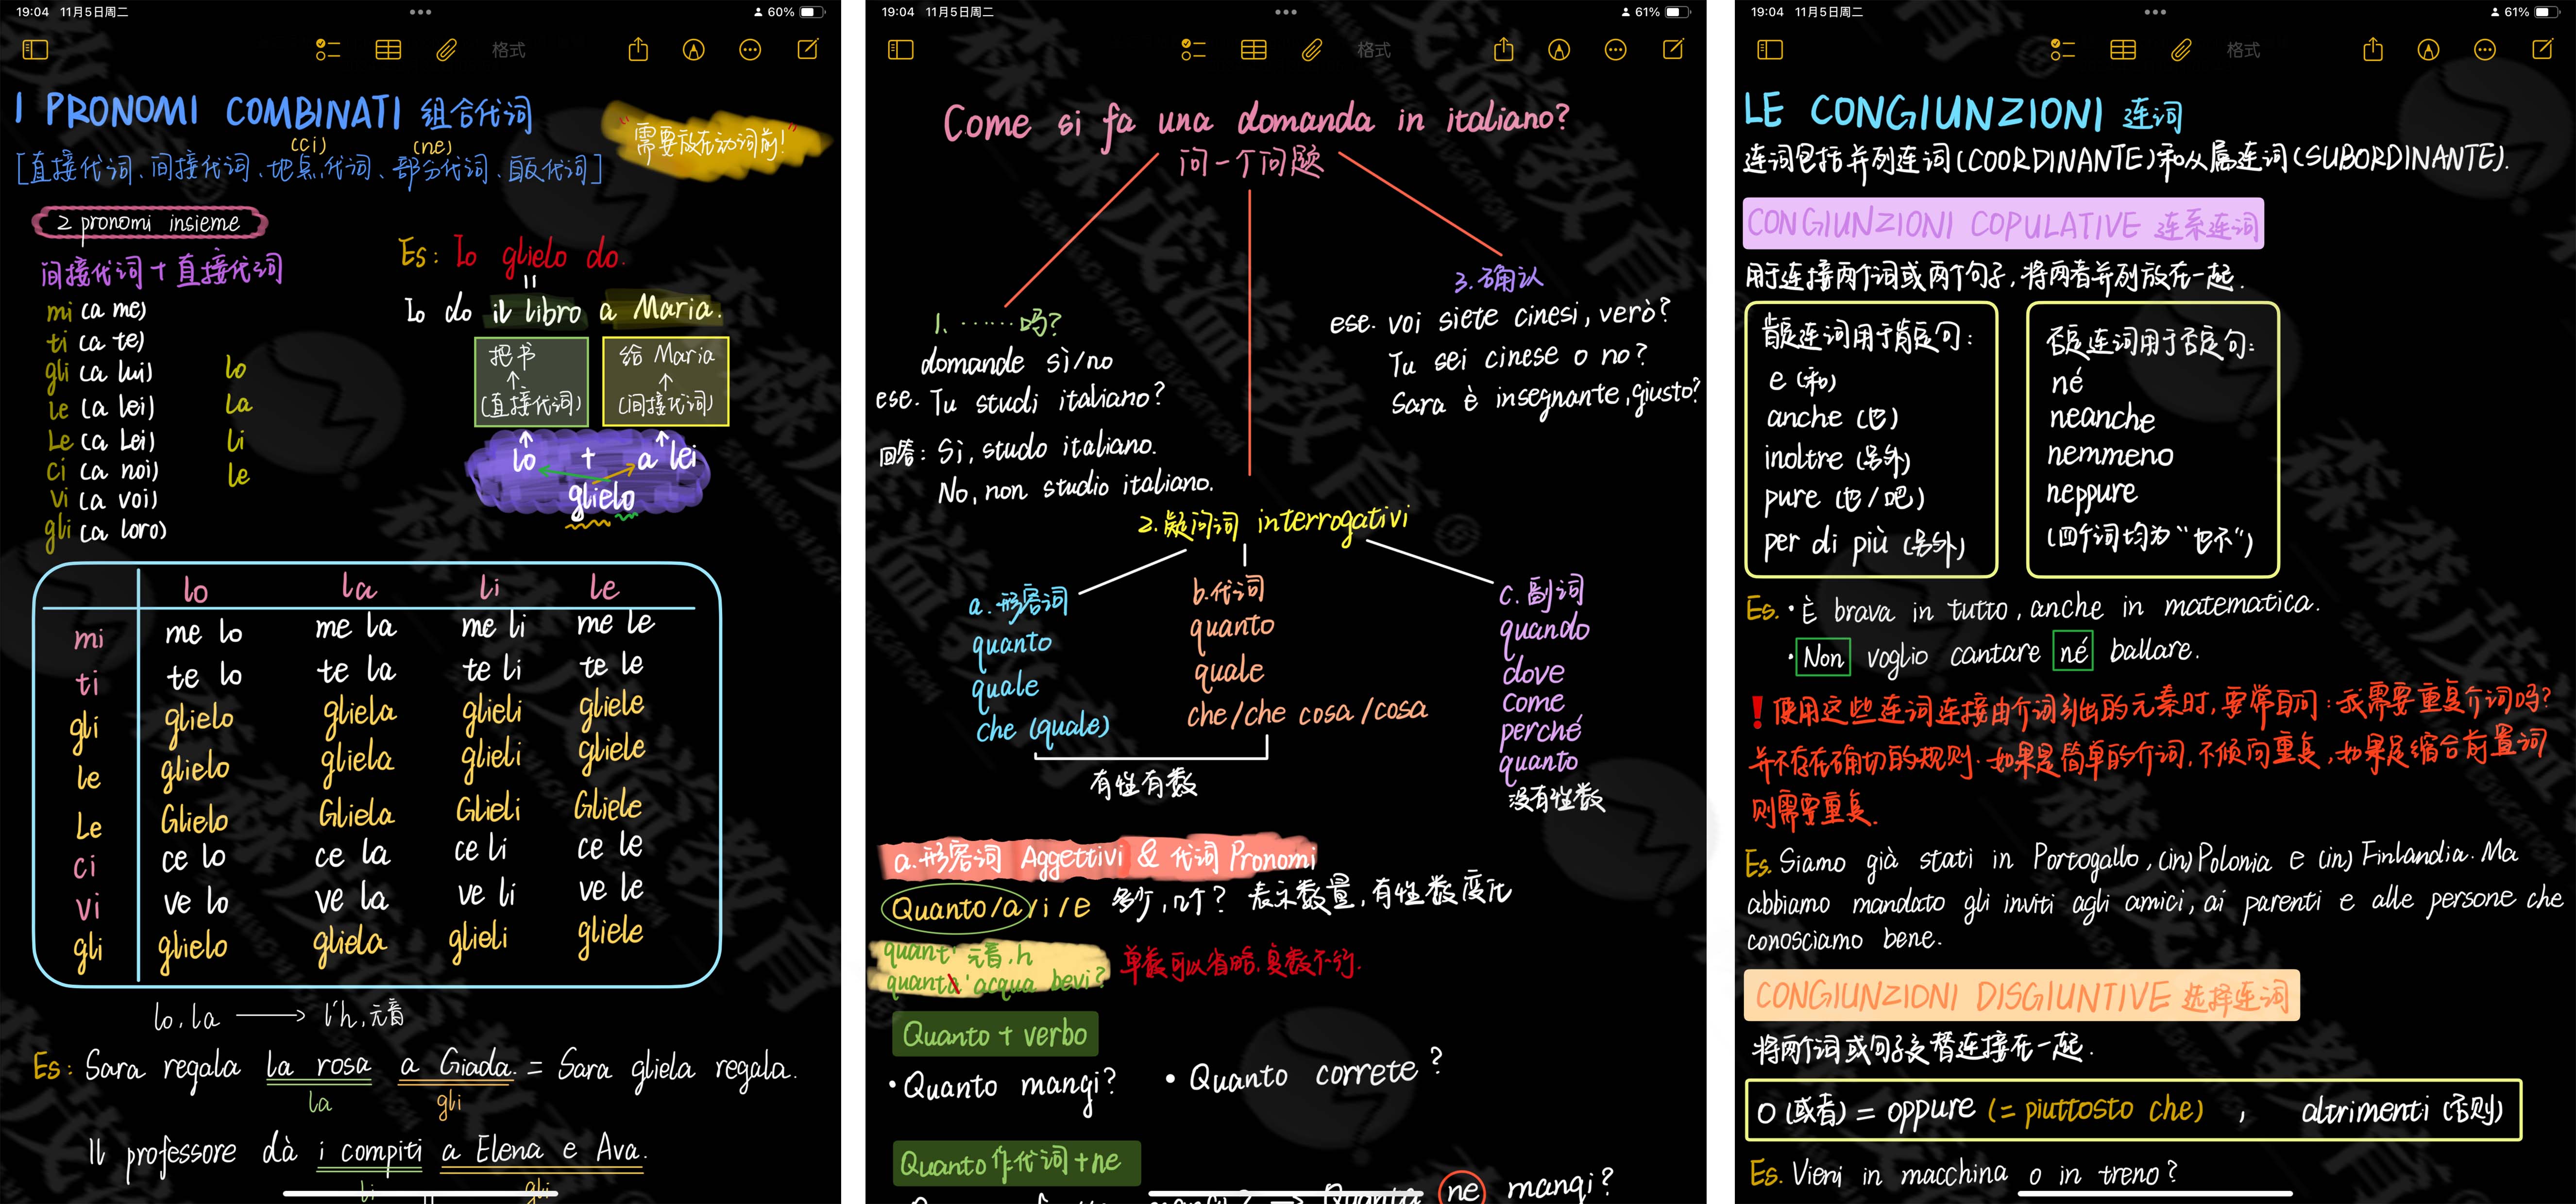 19:04 11月5日周二
60%
格式
I PRONOMI COMBINATI 组合代词
(ci) (ne)
[直接代词、间接代词、地点代词、部分代词、自反代词]
"需要放在动词前!"
2 pronomi insieme
间接代词 + 直接代词
mi (a me)
ti (a te)
gli (a lui) lo
le (a lei) la
Le (a Lei) li
ci (a noi) le
vi (a voi)
gli (a loro)
Es: Io glielo do.
Io do il libro a Maria.
把书 给 Maria
(直接代词) (间接代词)
lo + a lei
glielo
lo la li le
mi me lo me la me li me le
ti te lo te la te li te le
gli glielo gliela glieli gliele
le glielo gliela glieli gliele
Le Glielo Gliela Glieli Gliele
ci ce lo ce la ce li ce le
vi ve lo ve la ve li ve le
gli glielo gliela glieli gliele
lo, la → l'h, 元音
Es: Sara regala la rosa a Giada. = Sara gliela regala.
la gli
Il professore dà i compiti a Elena e Ava.
li gli
19:04 11月5日周二
61%
格式
Come si fa una domanda in italiano?
问一个问题
1. ……吗?
domande sì/no
ese. Tu studi italiano?
回答: Sì, studo italiano.
No, non studio italiano.
3. 确认
ese. voi siete cinesi, verò?
Tu sei cinese o no?
Sara è insegnante, giusto?
2. 疑问词 interrogativi
a. 形容词
quanto
quale
che (quale)
b. 代词
quanto
quale
che/che cosa/cosa
有性有数
c. 副词
quando
dove
come
perché
quanto
没有性数
a. 形容词 Aggettivi & 代词 Pronomi
Quanto/a/i/e 多少, 几个? 表示数量, 有性数变化
quant' 元音, h
quanta' acqua bevi? 单数可以省略, 复数不行.
Quanto + verbo
• Quanto mangi? • Quanto correte?
Quanto 作代词 + ne
ne mangi?
19:04 11月5日周二
61%
格式
LE CONGIUNZIONI 连词
连词包括并列连词(COORDINANTE)和从属连词(SUBORDINANTE).
CONGIUNZIONI COPULATIVE 连系连词
用于连接两个词或两个句子, 将两者并列放在一起.
肯定连词用于肯定句:
e (和)
anche (也)
inoltre (另外)
pure (也/吧)
per di più (另外)
否定连词用于否定句:
né
neanche
nemmeno
neppure
(四个词均为"也不")
Es. • È brava in tutto, anche in matematica.
• Non voglio cantare né ballare.
! 使用这些连词连接由介词引出的元素时, 要常自问: 我需要重复介词吗?
并不存在确切的规则. 如果是简单的介词, 不倾向重复, 如果是缩合前置词
则需要重复.
Es. Siamo già stati in Portogallo, (in) Polonia e (in) Finlandia. Ma
abbiamo mandato gli inviti agli amici, ai parenti e alle persone che
conosciamo bene.
CONGIUNZIONI DISGIUNTIVE 选择连词
将两个词或句子交替连接在一起.
o (或者) = oppure (= piuttosto che) , altrimenti (否则)
Es. Vieni in macchina o in treno?
森茂益教育
SENMAOYI EDUCATION